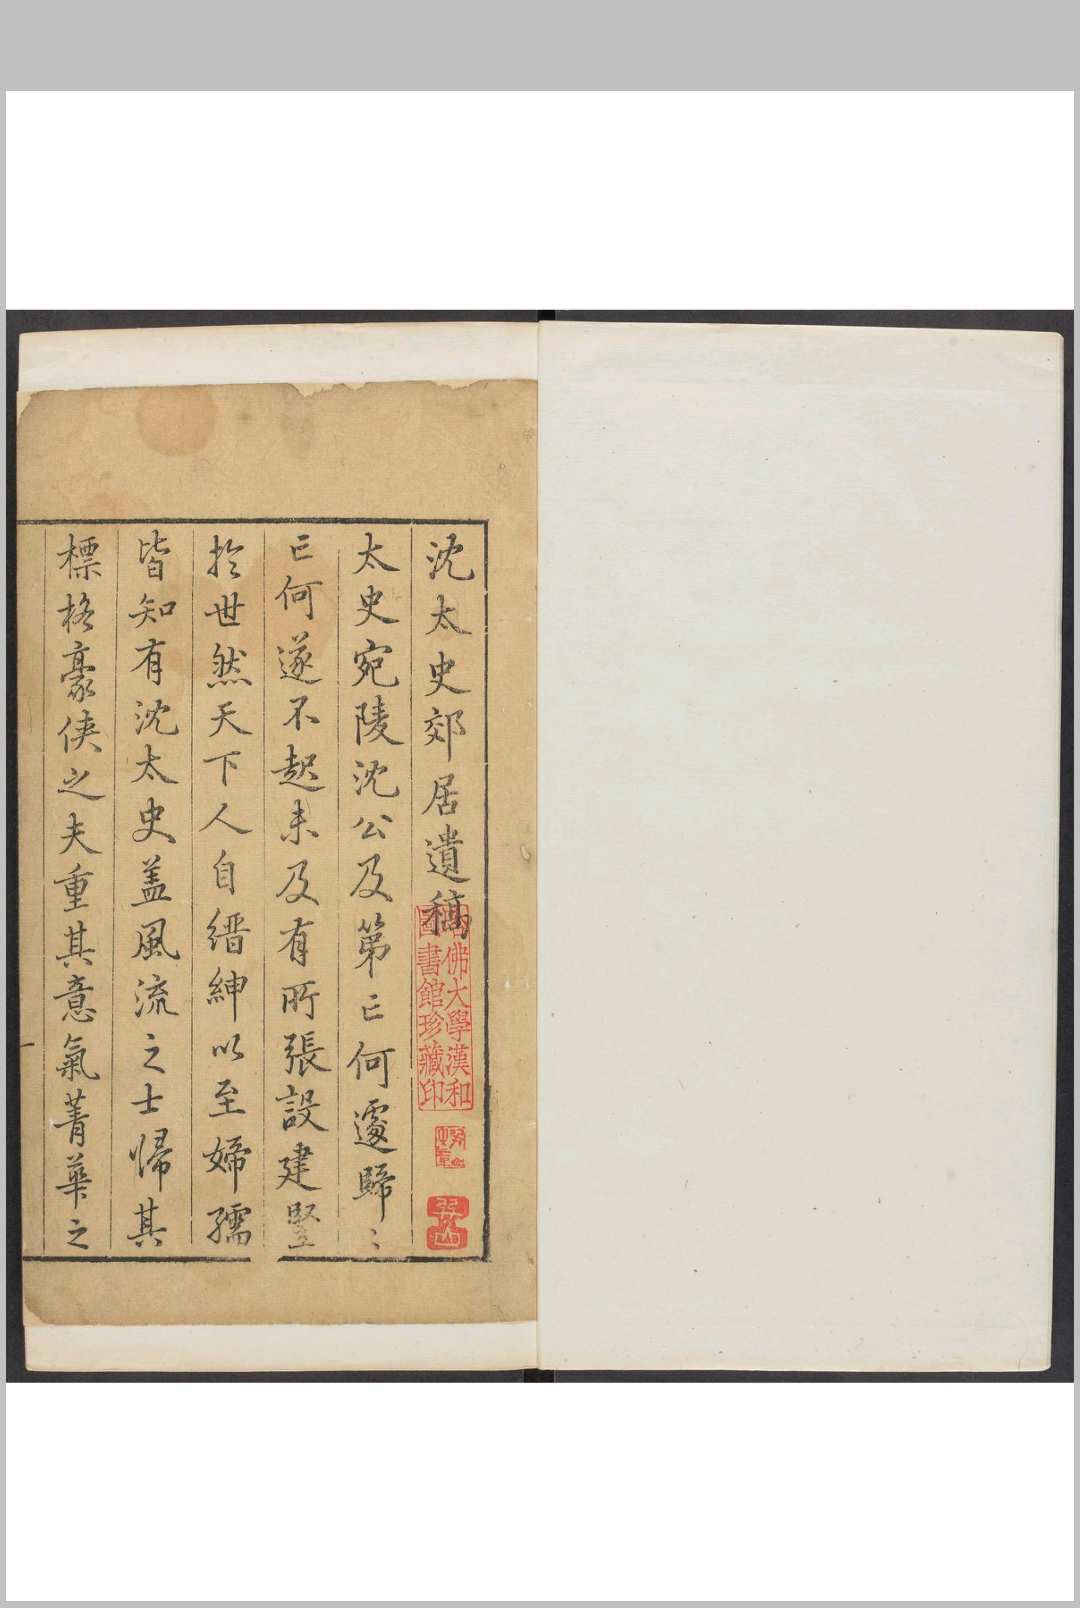 沈太史郊居遺稿
太史宛陵沈公及第亡何遽歸〻
亡何遂不起未及有所張設建豎
於世然天下人自縉紳以至婦孺
皆知有沈太史盖風流之士歸其
標格豪俠之夫重其意氣菁華之
哈佛大學漢和
圖書館珍藏印